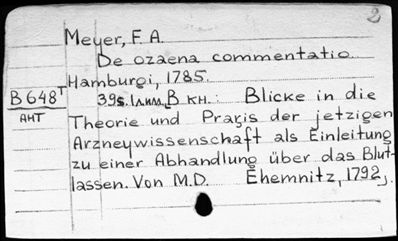 2
Meyer, F. A.
De ozaena commentatio
Hamburgi, 1785.
B 648т
39s. 1л.ил. В кн.: Blicke in die
АНТ
Theorie und Praxis der jetzigen
Arzneywissenschaft als Einleitung
zu einer Abhandlung über das Blut-
lassen. Von M.D. Ehemnitz, 1792,.